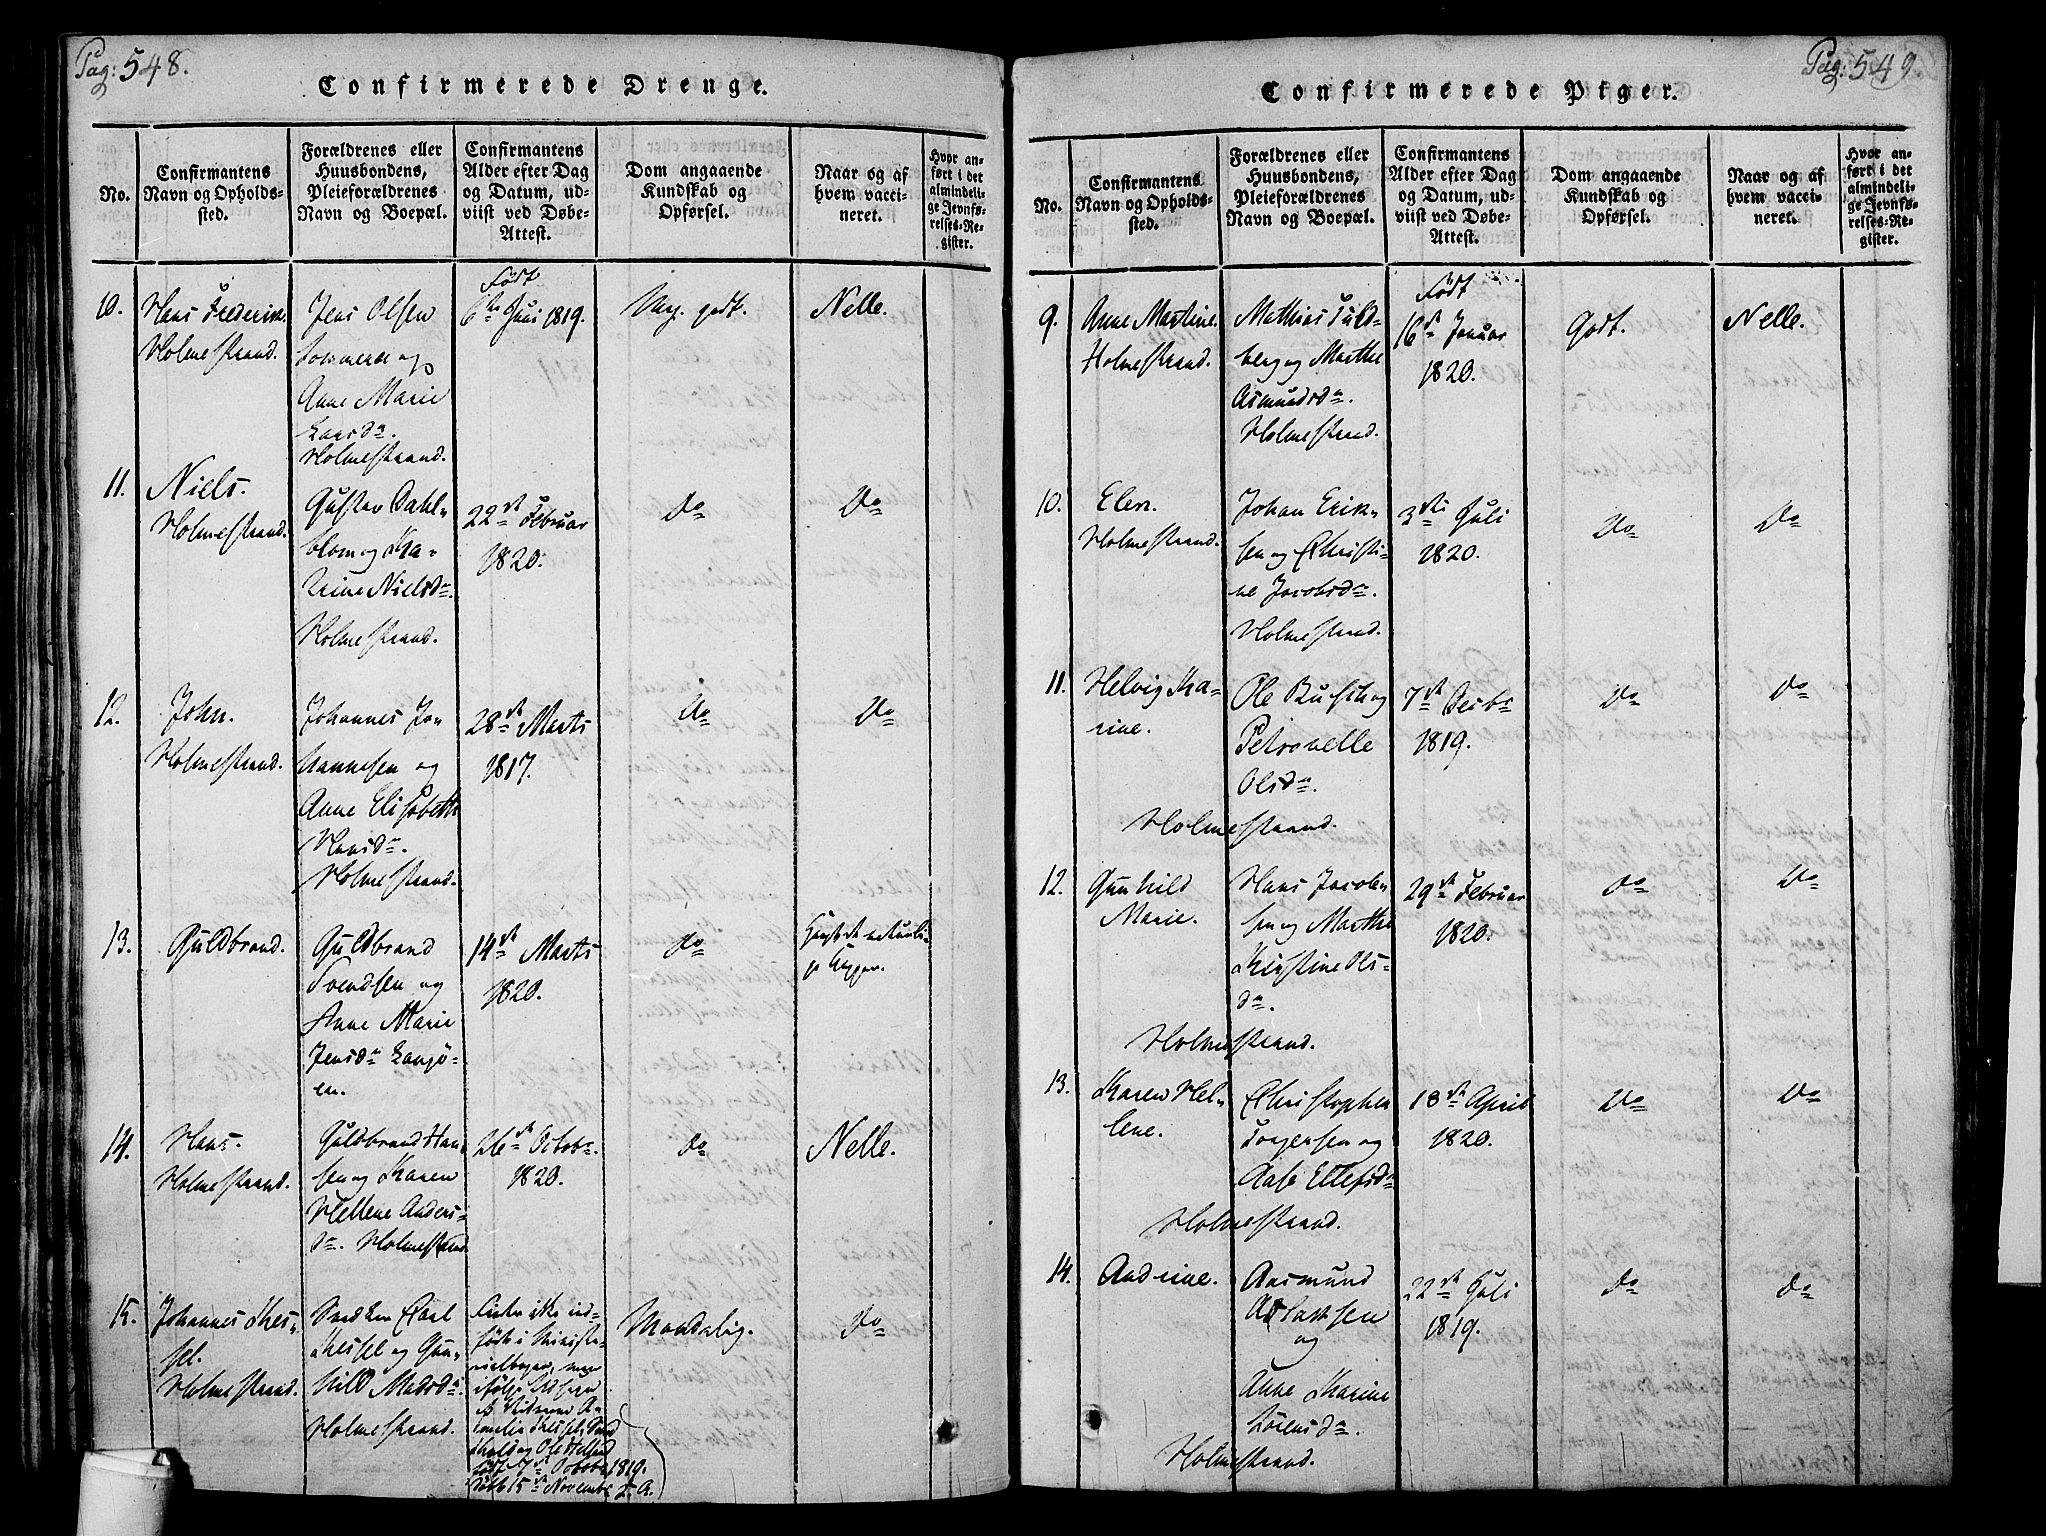 Pag: 548.
Confirmerede Drenge.
No.
Confirmantens
Navn og Opholds-
sted.
Forældrenes eller
Huusbondens,
Pleieforældrenes
Navn og Boepæl.
Confirmantens
Alder efter Dag
og Datum, ud-
viist ved Døbe-
Attest.
Dom angaaende
Kundskab og
Opførsel.
Naar og af
hvem vacci-
neret.
Hvor an-
ført i det
almindeli-
ge Jevnfø-
relses-Re-
gister.
10.
Hans Frederik.
Holmestrand.
Jens Olsen
og
Anne Marie
Larsd.
Holmestrand.
Født
6te Juni 1819.
Meg. godt.
Nelle.
11.
Niels.
Holmestrand.
Gustav Dahl-
blom og Ka-
trine Nielsd.
Holmestrand.
22de Februar
1820.
Do
Do
12.
John.
Holmestrand.
Johannes Jo-
hannesen og
Anne Elisabeth
Hansd.
Holmestrand.
28de Marts
1817.
do
Do
13.
Guldbrand.
Guldbrand
Svendsen og
Anne Marie
Jensd. Langö-
en.
14de Marts
1820.
do
14.
Hans.
Holmestrand.
Guldbrand Han-
sen og Karen
Hellene Anders-
d. Holmestrand
26de Octob.
1820.
do
Nelle.
15.
Johannes Kes-
sel.
Holmestrand.
Carl
Kessel og Gun-
hild Madsd.
Holmestrand.
Findes ikke ind-
ført i Ministe-
rialbogen, men
ifølge
født 7de October 1819.
døbt 15de Novembr
Maadelig.
do
Pag: 549.
Confirmerede Piger.
No.
Confirmantens
Navn og Opholds-
sted.
Forældrenes eller
Huusbondens,
Pleieforældrenes
Navn og Boepæl.
Confirmantens
Alder efter Dag
og Datum, ud-
viist ved Døbe-
Attest.
Dom angaaende
Kundskab og
Opførsel.
Naar og af
hvem vacci-
neret.
Hvor an-
ført i det
almindeli-
ge Jevnfø-
relses-Re-
gister.
9.
Anne Martine.
Holmestrand.
Mathias Guld-
berg og Marthe
Asmundsd.
Holmestrand.
Født
16de Januar
1820.
Godt.
Nelle.
10.
Elen.
Holmestrand.
Johan Erik-
sen og Christi-
ne Jacobsd.
Holmestrand.
3die Juli
1820.
Do
Do
11.
Helvig Ka-
rine.
Ole og
Petronelle
Olsd.
Holmestrand.
7de Decbr
1819.
Do
Do
12.
Gunhild
Marie.
Hans Jacob-
sen og Marthe
Kirstine Ols-
d.
Holmestrand.
29de Februar
1820.
Do
Do
13.
Karen Hel-
lene.
Christopher
Torgersen og
Aase Ellefsd.
Holmestrand.
18de April
1820.
Do
Do
14.
Andrine.
Aasmund
Aslaksen
og
Anne Karine
Sörensd.
Holmestrand.
22de Juli
1819.
Do
do